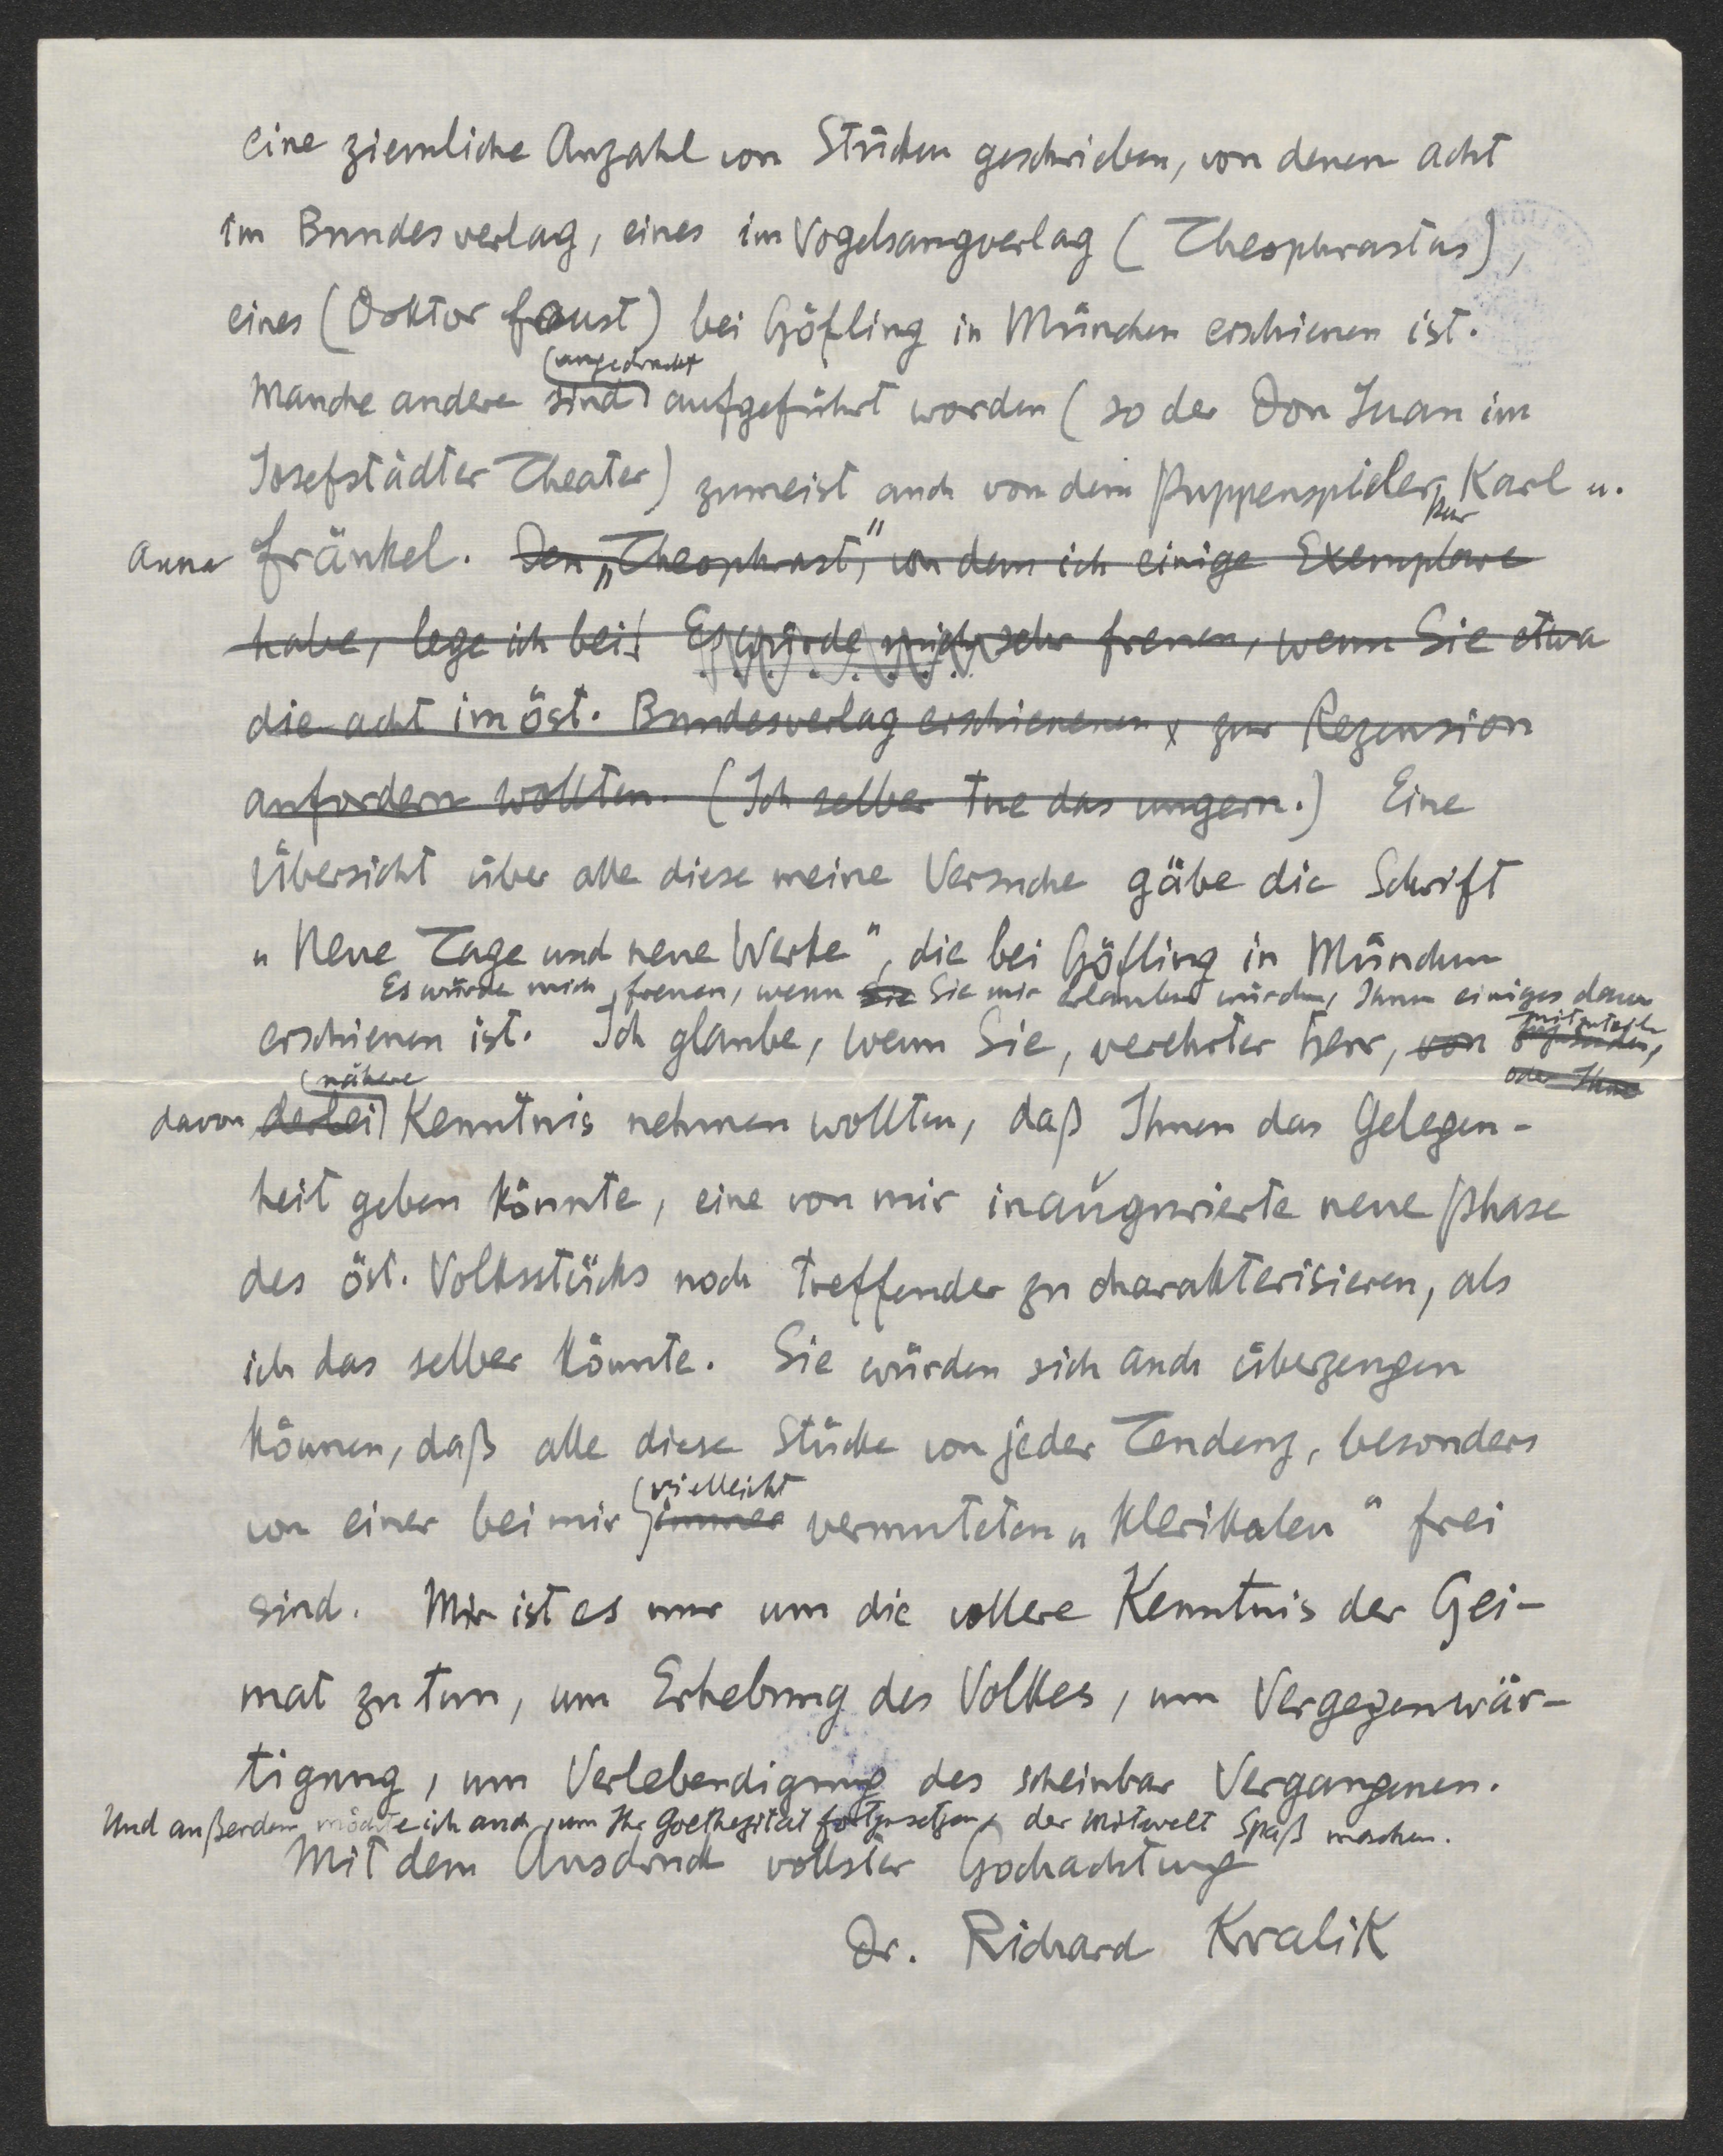 eine ziemliche Anzahl von Stücken geschrieben, von denen acht
im Bundesverlag, eines im Vogelsangverlag (Theophrastus),
eines (Doktor Faust) bei Höfling in München erschienen ist.
ungedruckt
Manche andere sind aufgeführt worden (so der Don Juan im
Josefstädter Theater) zumeist auch von dem Puppenspieler Karl u.
Anna Fränkel. Den „Theophrast“, von dem ich einige Exemplare
habe, lege ich bei. Es würde mich sehr freuen, wenn Sie etwa
die acht im öst. Bundesverlag erschienenen zur Rezension
anfordern wollten. (Ich selber tue das ungern.) Eine
Übersicht über alle diese meine Versuche gäbe die Schrift
„Neue Tage und neue Werke“, die bei Höfling in München
Es würde mich freuen, wenn Sie Sie mir erlauben würden, Ihnen einiges davon
mitzuteilen
erschienen ist. Ich glaube, wenn Sie, verehrter Herr, von
oder Ihne
nähere
davon derlei Kenntnis nehmen wollten, daß Ihnen das Gelegen-
heit geben könnte, eine von mir inaugurierte neue Phase
des öst. Volksstücks noch treffender zu charakterisieren, als
ich das selber könnte. Sie würden sich auch überzeugen
können, daß alle diese Stücke von jeder Tendenz, besonders
vielleicht
von einer bei mir immer vermuteten „klerikalen“ frei
sind. Mir ist es nur um die vollere Kenntnis der Hei-
mat zu tun, um Erhebung des Volkes, um Vergegenwär-
tigung, um Verlebendigung des scheinbar Vergangenen.
Und außerdem möchte ich auch, um Ihr Goethezitat fortzusetzen, der Mitwelt Spaß machen.
Mit dem Ausdruck vollster Hochachtung
Dr. Richard Kralik